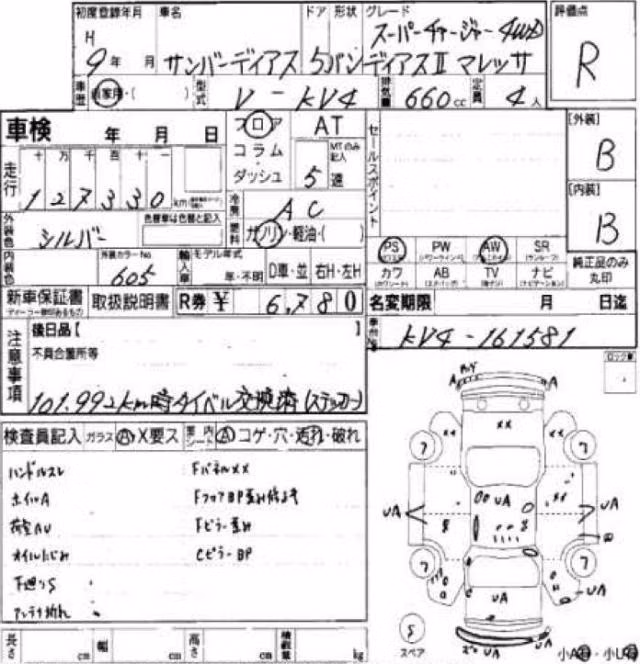 初度登録年月 車名 ドア 形状 グレード 評価点
H 9年 月 サンバーディアス 5 バン スーパーチャージャー 4WD
ディアスⅡ マレッサ R
車歴 自家用・( ) 型式 V-KV4 排気量 660cc 定員 4人
車検 年 月 日 フロア AT セールスポイント [外装]
コラム MTのみ記入 B
走行 十 万 千 百 十 一 ダッシュ 5速
127330km 冷房 AC [内装]
外装色 シルバー 色替車は色替と記入 燃料 ガソリン・軽油・( ) B
内装色 外装カラーNo 605 輸入車 モデル年式 年・不明 D車・並 右H・左H
PS PW AW SR 純正品のみ丸印
カワ AB TV ナビ
新車保証書 取扱説明書 R券 ¥ 6,780 名変期限 月 日迄
注意事項 後日品【 】 車台No KV4-161581
不具合箇所等
101.992km時タイベル交換済(ステッカー)
検査員記入 ガラス A X要ス 室内シート A コゲ・穴・汚れ・破れ
ハンドルスレ Fパネルxx
ホイルA FフロアBP歪み修正有
荷室AU Fピラー歪み
オイルにじみ CピラーBP
下廻りS
アンテナ折れ
長さ cm 幅 cm 高さ cm 積載量 kg
スペア